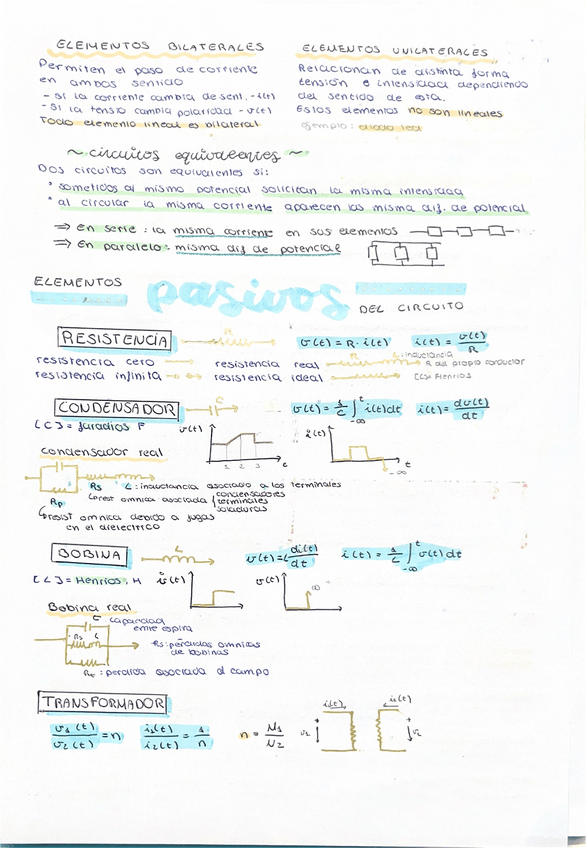 ELEMENTOS BILATERALES
Permiten el paso de corriente
en ambos sentido
- Si la corriente cambia de sent. -i(t)
- Si la tensio cambia polaridad -v(t)
Todo elemento lineal es bilateral
ELEMENTOS UNILATERALES
Relacionan de distinta forma
tensión e intensidad dependiendo
del sentido de esta.
Estos elementos no son lineales
ejemplo: diodo led
~ circuitos equivalentes ~
Dos circuitos son equivalentes si:
* sometidos al mismo potencial solicitan la misma intensidad
* al circular la misma corriente aparecen las misma dif. de potencial
⇒ en serie: la misma corriente en sus elementos
⇒ en paralelo: misma dif de potencial
ELEMENTOS pasivos DEL CIRCUITO
RESISTENCIA R v(t)=R·i(t) i(t)=v(t)/R
resistencia cero → resistencia real R L: inductancia
R del propio conductor
resistencia infinita resistencia ideal [L]= Henrios
CONDENSADOR C v(t)=1/C ∫-∞^t i(t)dt i(t)=dv(t)/dt
[C]= faradios F v(t) i(t)
1 2 3 t t
-∞
condensador real
Rs L: inductancia asociado a los terminales
Rp
rest omnica asociada condensadores
terminales
soladuras
resist omnica debido a fugas
en el dielectrico
BOBINA L v(t)=L di(t)/dt i(t)=1/L ∫-∞^t v(t)dt
[L]= Henrios, H i(t) v(t) ∞
Bobina real
C: capacidad
entre espira
Rs L
Rs: pérdidas omnicas
de bobinas
: perdida asociada al campo
TRANSFORMADOR
v1(t)/v2(t)=n i1(t)/i2(t)=1/n n=N1/N2
i(t) i(t)
+ +